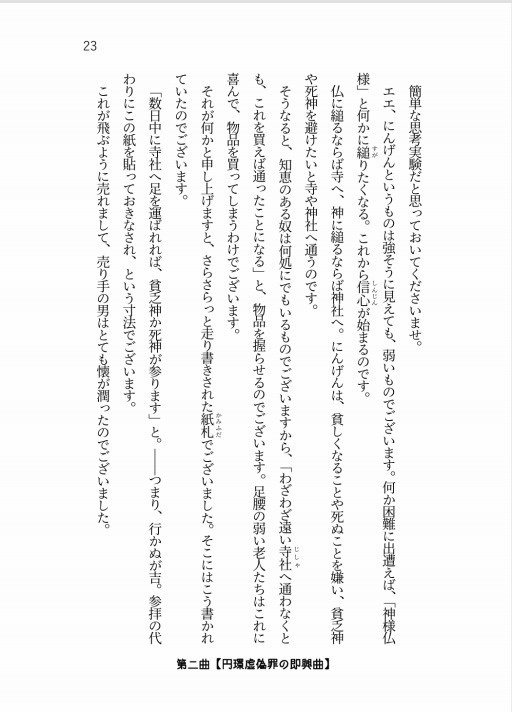 23
簡単な思考実験だと思っておいてくださいませ。
エエ、にんげんというものは強そうに見えても、弱いものでございます。何か困難に出遭えば、「神様仏
様」と何かに縋りたくなる。これから信心が始まるのです。
仏に縋るならば寺へ、神に縋るならば神社へ。にんげんは、貧しくなることや死ぬことを嫌い、貧乏神
や死神を避けたいと寺や神社へ通うのです。
そうなると、知恵のある奴は何処にでもいるものでございますから、「わざわざ遠い寺社へ通わなくと
も、これを買えば通ったことになる」と、物品を握らせるのでございます。足腰の弱い老人たちはこれに
喜んで、物品を買ってしまうわけでございます。
それが何かと申し上げますと、さらさらっと走り書きされた紙札でございました。そこにはこう書かれ
ていたのでございます。
「数日中に寺社へ足を運ばれれば、貧乏神か死神が参ります」と。――つまり、行かぬが吉。参拝の代
わりにこの紙を貼っておきなされ、という寸法でございます。
これが飛ぶように売れまして、売り手の男はとても懐が潤ったのでございました。
すが
しんじん
じしゃ
かみふだ
第二曲【円環虚偽罪の即興曲】